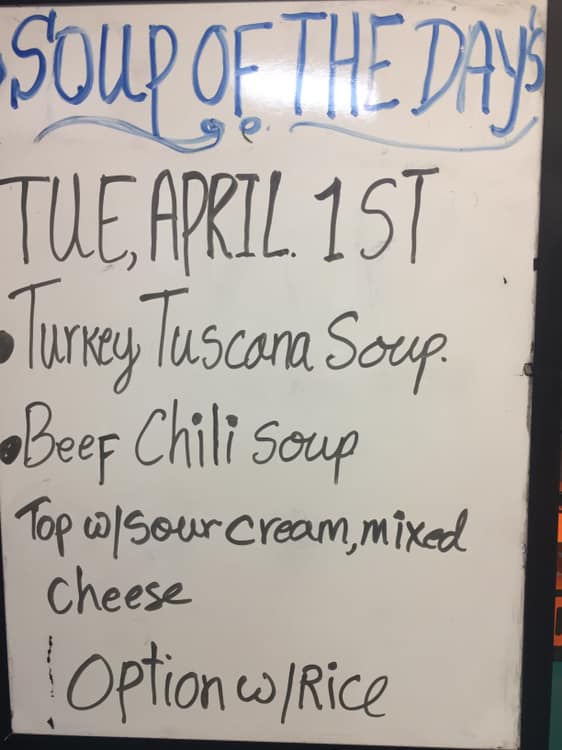 SOUP OF THE DAY'S
TUE, APRIL. 1ST
• Turkey Tuscana Soup.
• Beef Chili Soup
Top w/sour cream, mixed
cheese
Option w/Rice